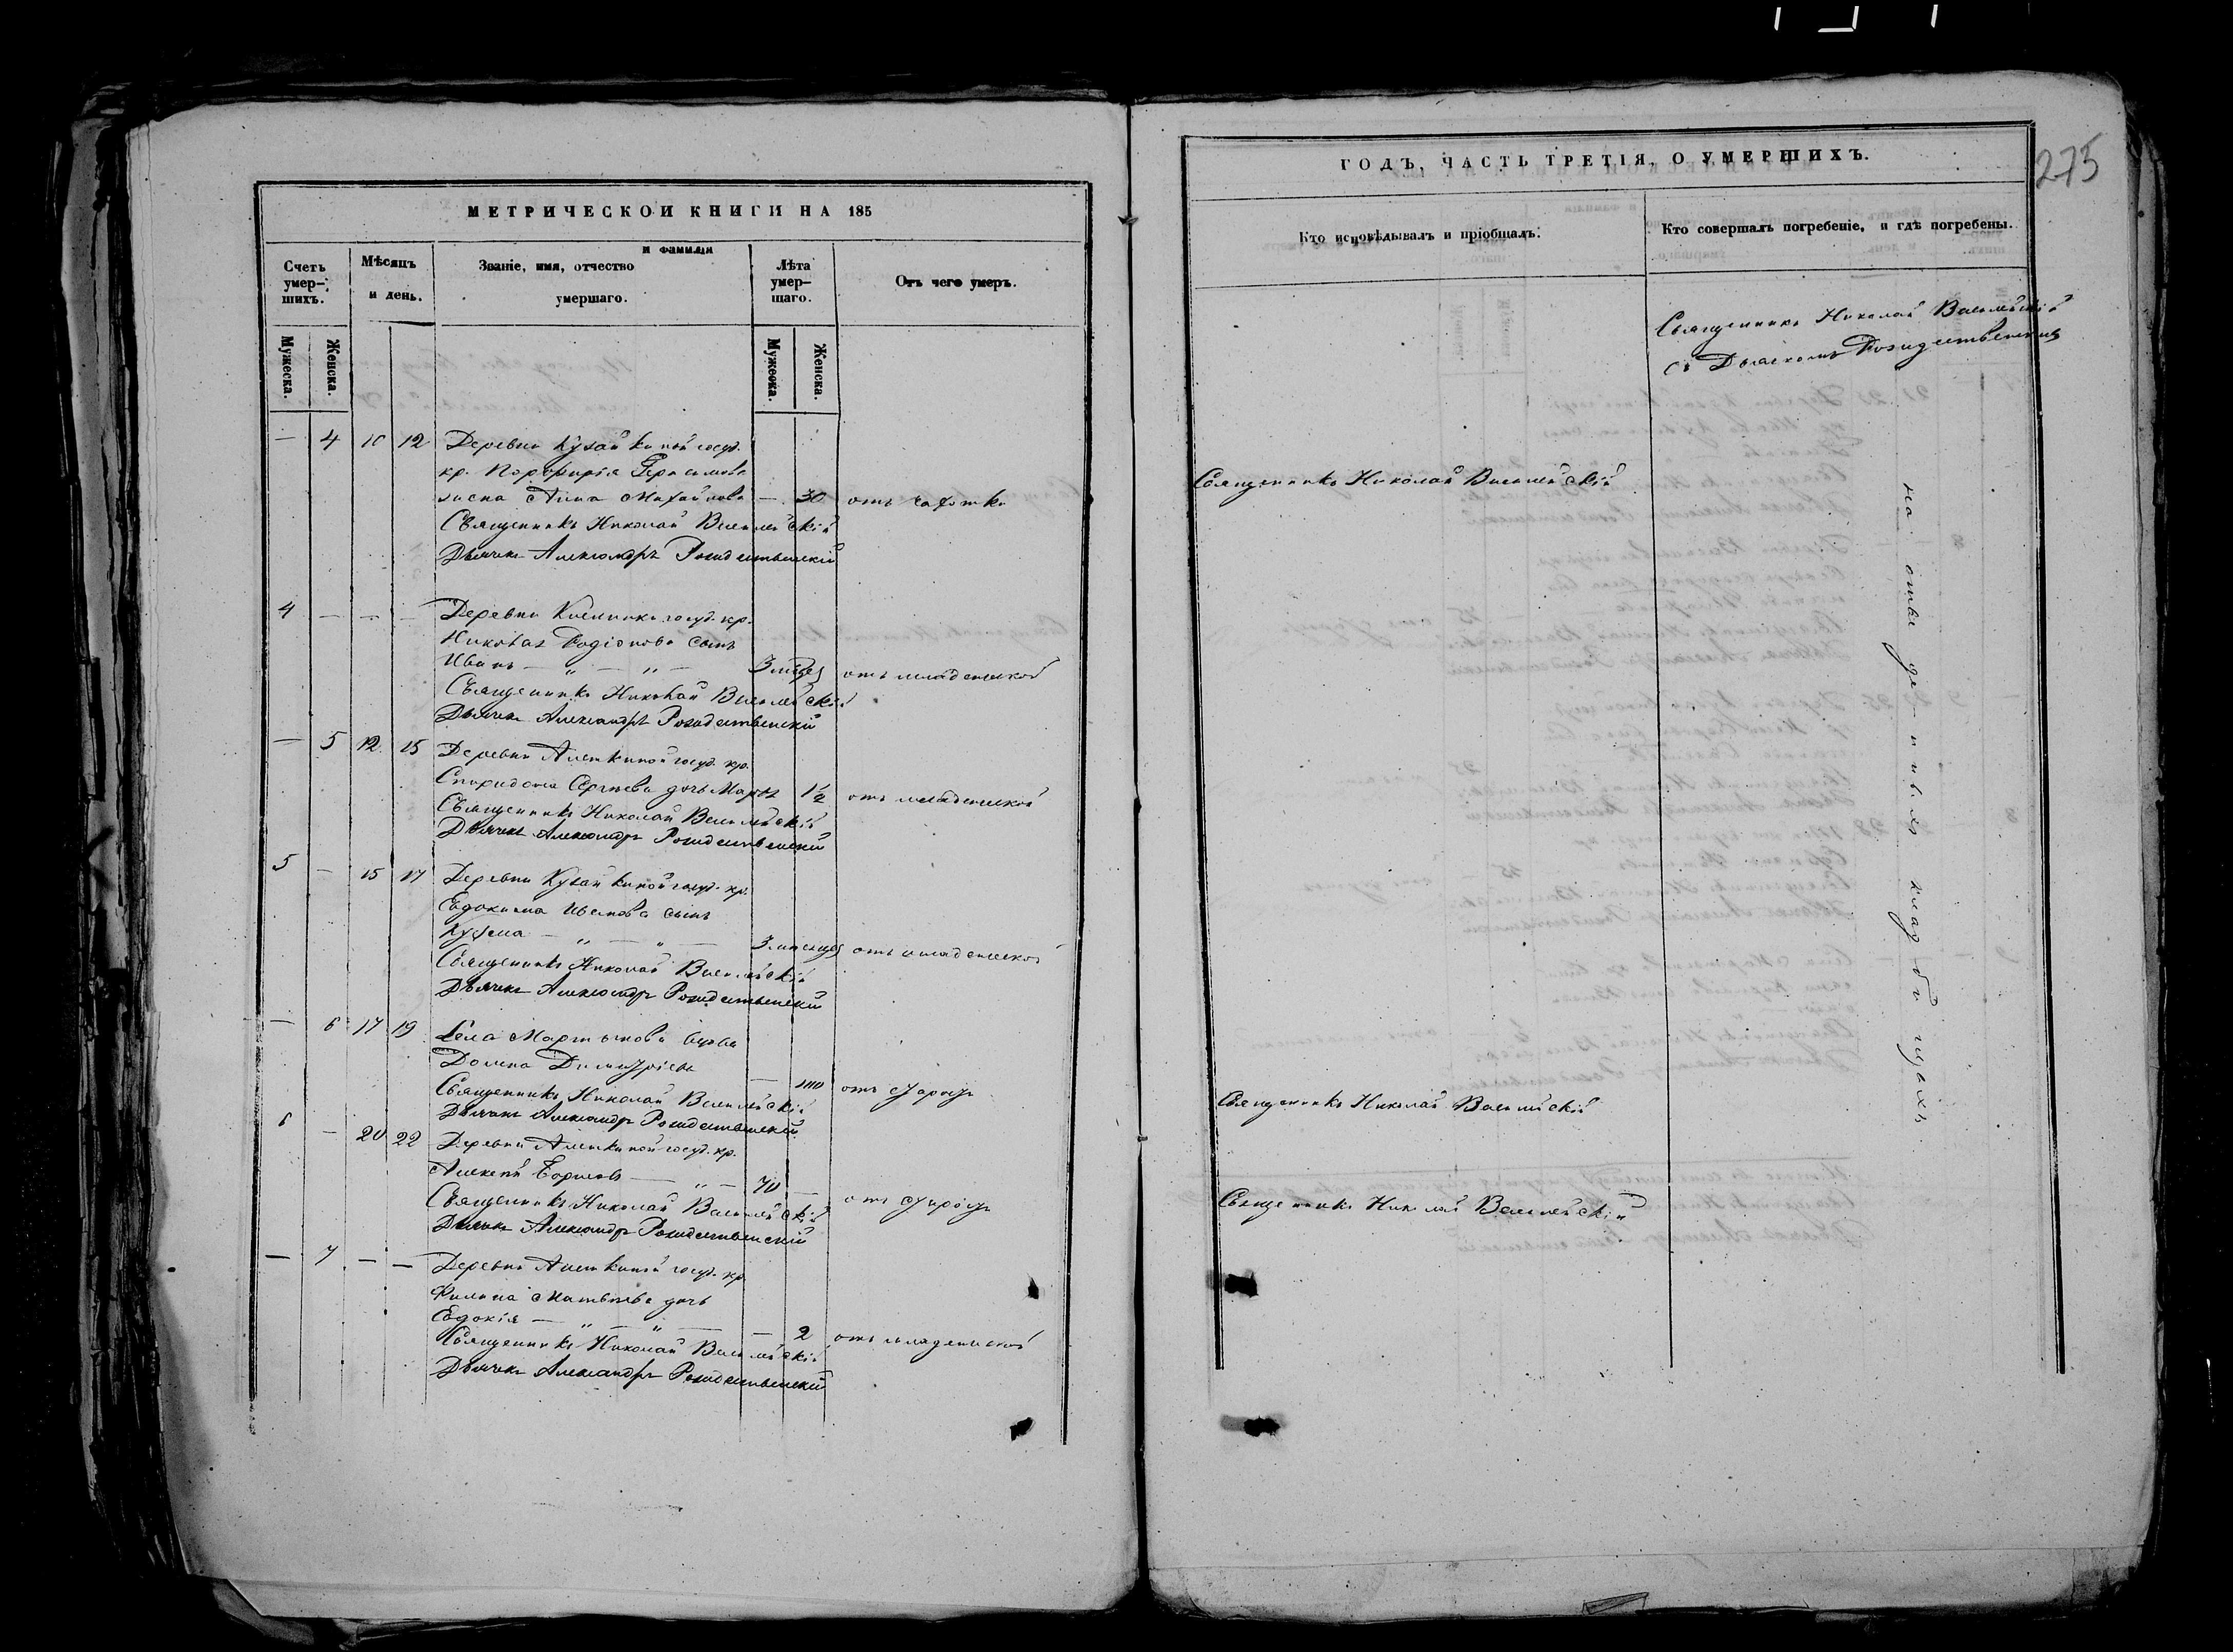 МЕТРИЧЕСКОЙ КНИГИ НА 185
Счетъ умер-шихъ.
Мужеска.
Женска.
Мѣсяцъ и день.
и фамилія
Званіе, имя, отчество
умершаго.
Лѣта умер-шаго.
Мужеска.
Женска.
Отъ чего умеръ.
— 4 10 12 Деревни Кузайкиной госуд.
кр. Порфирія Герасимова
жена Анна Михайлова — 30 отъ чахотки
Священникъ Николай
Дьячекъ Александръ Рождественскій
4 — — — Деревни госуд. кр.
Николая Родіонова сынъ
Иванъ — „ — „ — 3 отъ младенской
Священникъ Николай
Дьячекъ Александръ Рождественскій
— 5 12 15 Деревни Алешкиной госуд. кр.
Спиридона Сергѣева дочь 1½ отъ младенской
Священникъ Николай
Дьячекъ Александръ Рождественскій
5 — 15 17 Деревни Кузайкиной госуд. кр.
Евдокима Иванова сынъ
Кузьма — „ — „ — 3 мѣсяцевъ отъ младенской
Священникъ Николай
Дьячекъ Александръ Рождественскій
— 6 17 19 Села Мартынова вдова
Домна Димитріева — 100 отъ старости
Священникъ Николай
Дьячекъ Александръ Рождественскій
6 — 20 22 Деревни Алешкиной госуд. кр.
Алексѣй Борисовъ — „ — 70 — отъ старости
Священникъ Николай
Дьячекъ Александръ Рождественскій
— 7 — — Деревни Алешкиной госуд. кр.
Филипа Матвѣева дочь
Евдокія — „ — „ — — 2 отъ младенской
Священникъ Николай
Дьячекъ Александръ Рождественскій
ГОДЪ, ЧАСТЬ ТРЕТІЯ, О УМЕРШИХЪ.
275
Кто исповѣдывалъ и пріобщалъ.
Кто совершалъ погребеніе, и гдѣ погребены.
Священникъ Николай
съ Дьячкомъ Рождественскимъ
Священникъ Николай
на отведенныхъ кладбищахъ
Священникъ Николай
Священникъ Николай